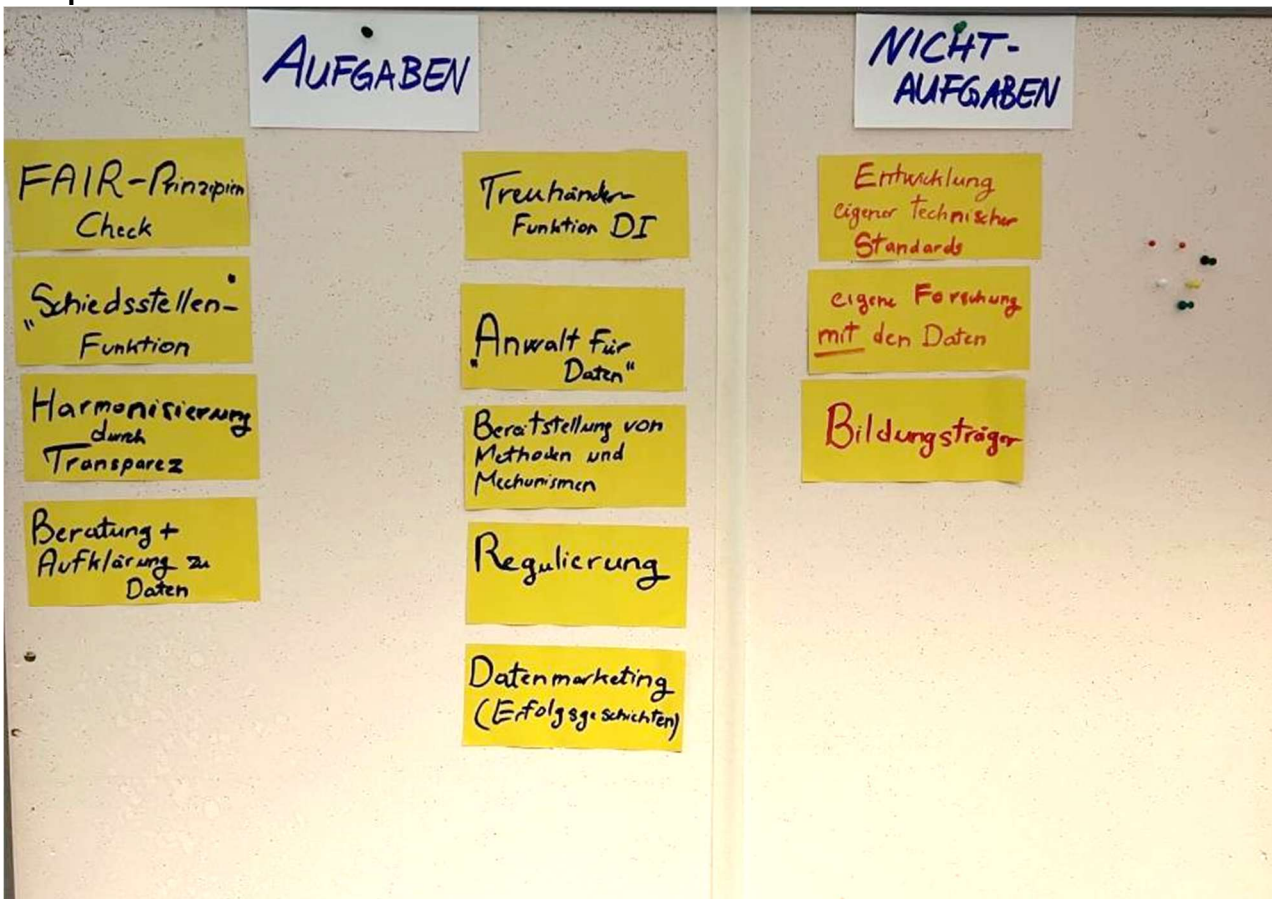 AUFGABEN
FAIR-Prinzipien
Check
"Schiedsstellen-
Funktion
Harmonisierung
durch
Transparez
Beratung +
Aufklärung zu
Daten
Treuhänder-
Funktion DI
"Anwalt für
Daten"
Bereitstellung von
Methoden und
Mechanismen
Regulierung
Datenmarketing
(Erfolgsgeschichten)
NICHT-
AUFGABEN
Entwicklung
eigener technischer
Standards
eigene Forschung
mit den Daten
Bildungsträger